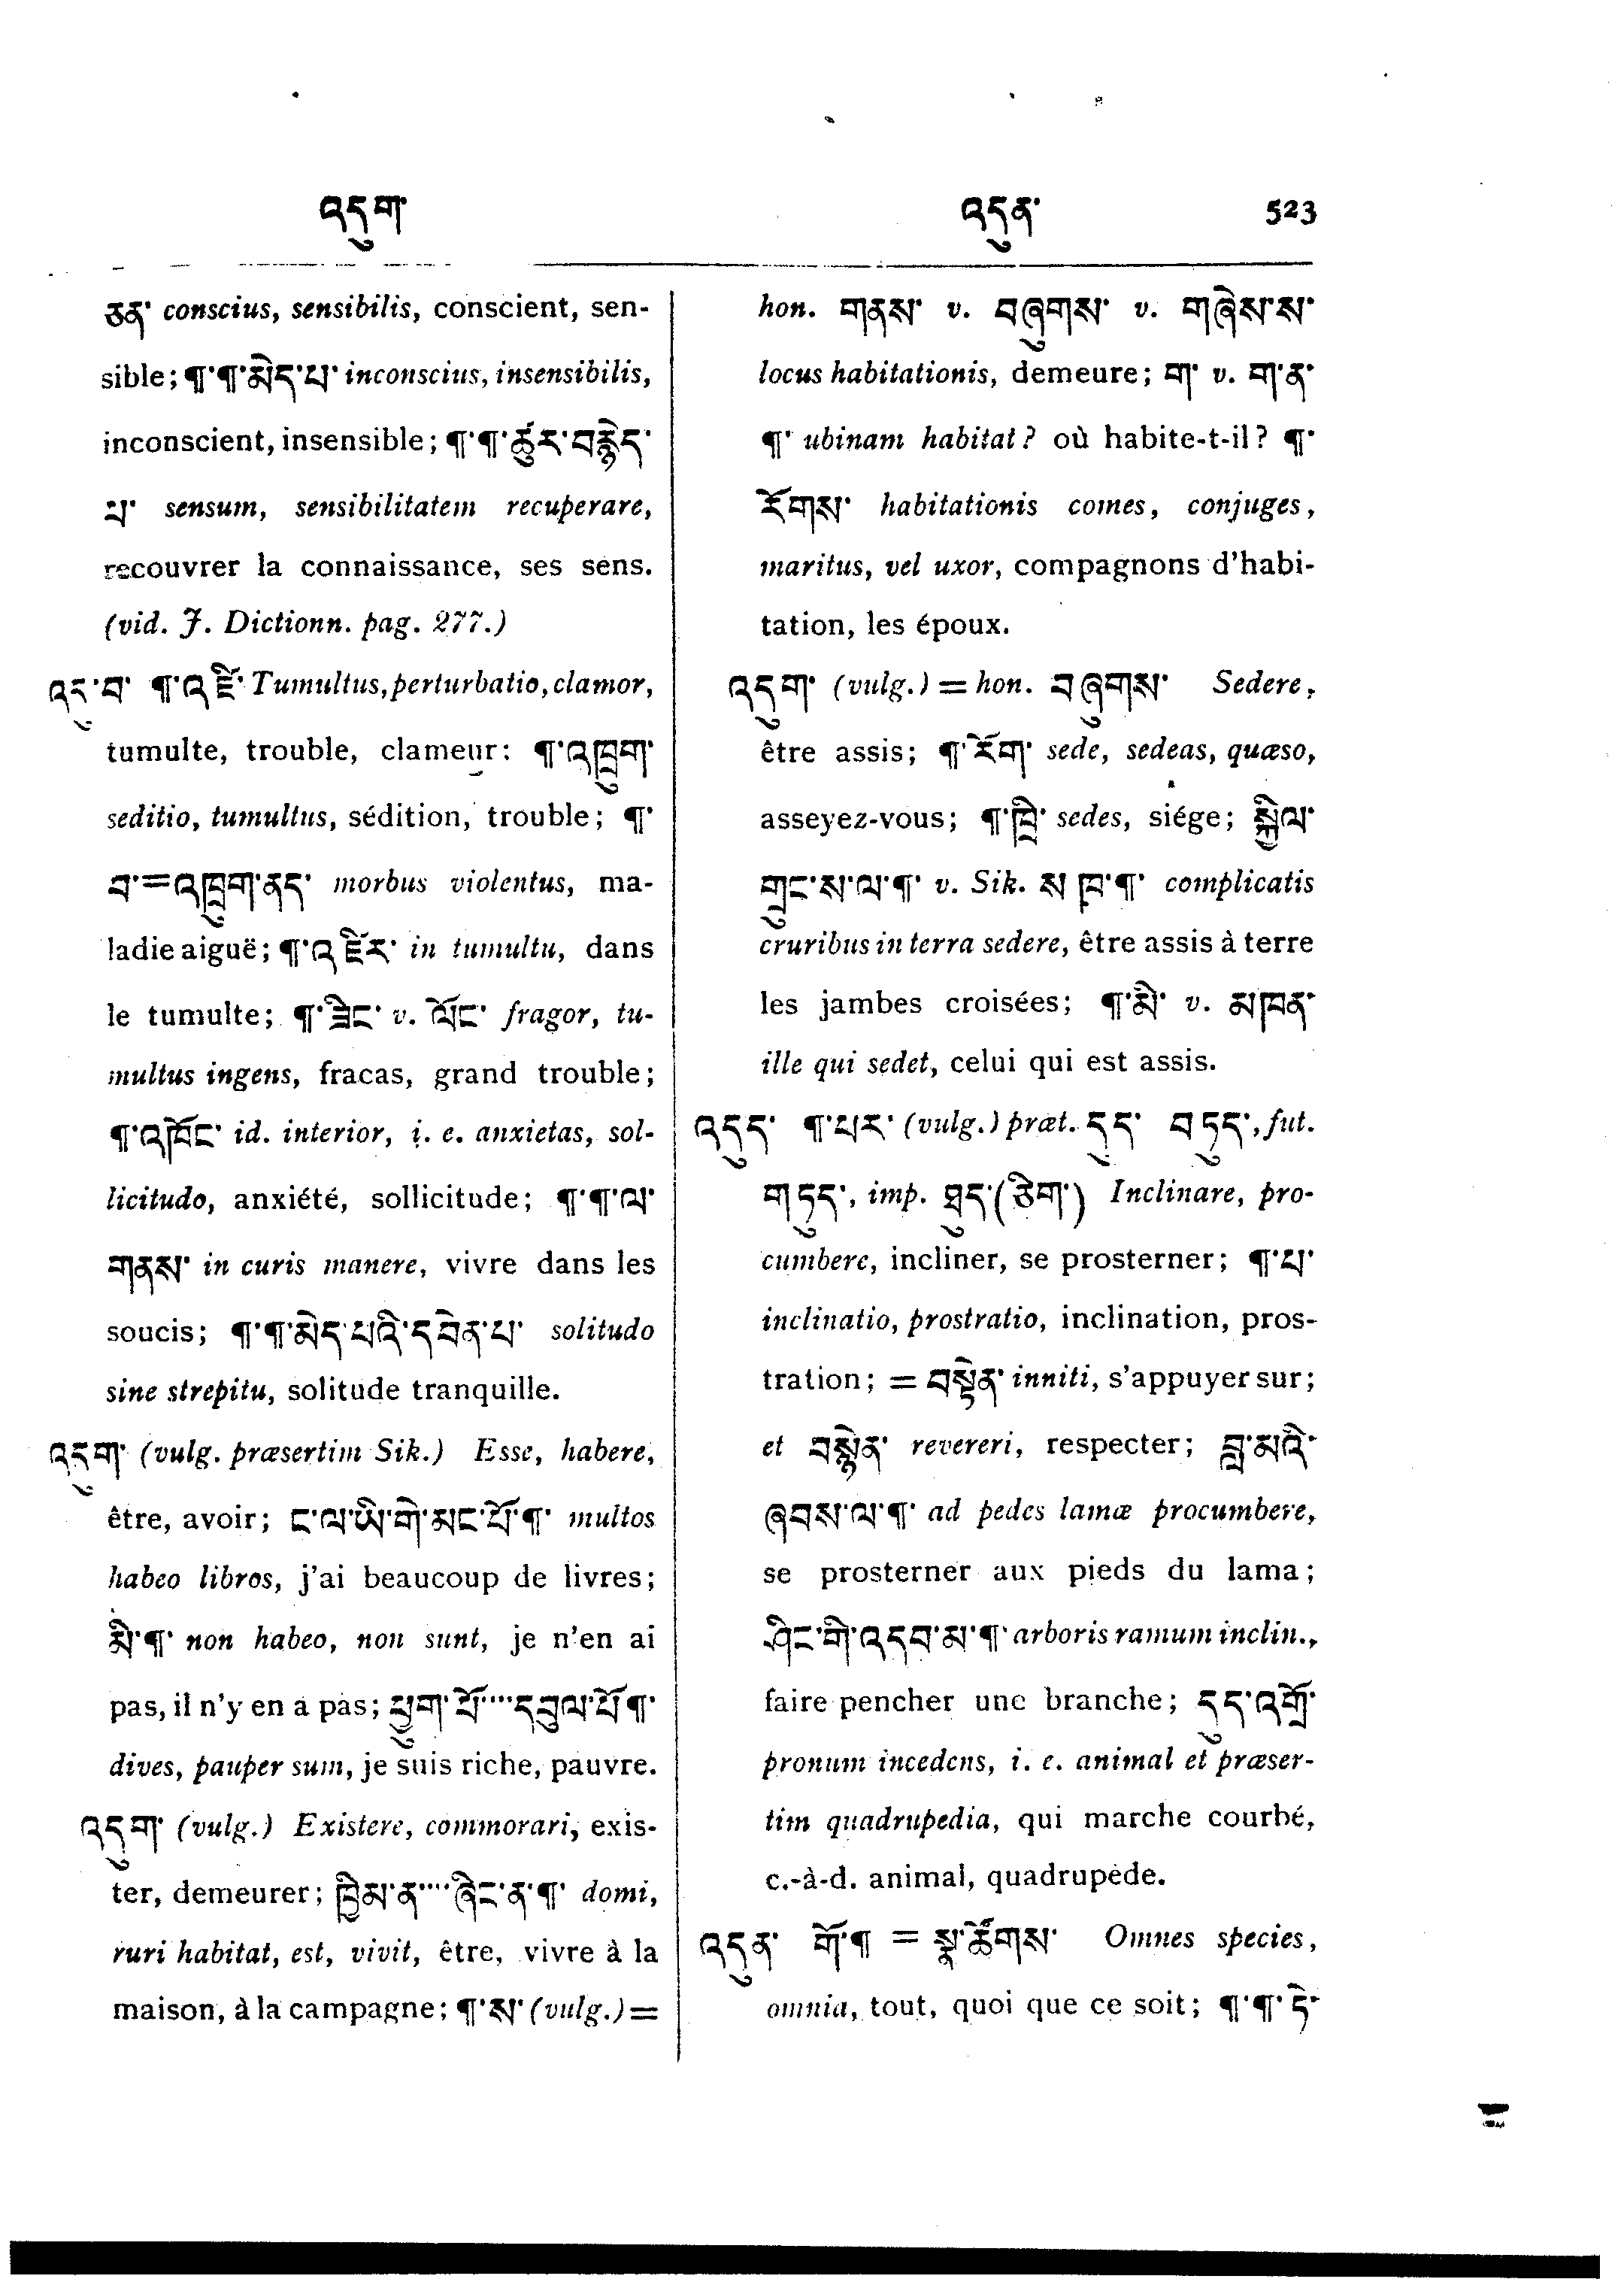 འདུག་ འདུན་ 523
ཅན་ conscius, sensibilis, conscient, sen-
sible; ¶་¶་མེད་པ་ inconscius, insensibilis,
inconscient, insensible; ¶་¶་ཚུར་བརྙེད་
པ་ sensum, sensibilitatem recuperare,
recouvrer la connaissance, ses sens.
(vid. J. Dictionn. pag. 277.)
འདུ་བ་ ¶་འཛི་ Tumultus, perturbatio, clamor,
tumulte, trouble, clameur: ¶་འཁྲུག་
seditio, tumultus, sédition, trouble; ¶་
བ་=འཁྲུག་ནད་ morbus violentus, ma-
ladie aiguë; ¶་འཛིར་ in tumultu, dans
le tumulte; ¶་ཟིང་ v. ལོང་ fragor, tu-
multus ingens, fracas, grand trouble;
¶་འཁོང་ id. interior, i. e. anxietas, sol-
licitudo, anxiété, sollicitude; ¶་¶་ལ་
གནས་ in curis manere, vivre dans les
soucis; ¶་¶་མེད་པའི་དབེན་པ་ solitudo
sine strepitu, solitude tranquille.
འདུག་ (vulg. præsertim Sik.) Esse, habere,
être, avoir; ང་ལ་ཡི་གེ་མང་པོ་¶་ multos
habeo libros, j'ai beaucoup de livres;
མི་¶་ non habeo, non sunt, je n'en ai
pas, il n'y en a pas; ཕྱུག་པོ་····དབུལ་པོ་¶་
dives, pauper sum, je suis riche, pauvre.
འདུག་ (vulg.) Existere, commorari, exis-
ter, demeurer; ཁྱིམ་ན་····ཞིང་ན་¶་ domi,
ruri habitat, est, vivit, être, vivre à la
maison, à la campagne; ¶་ས་ (vulg.) =
hon. གནས་ v. བཞུགས་ v. གཞེས་ས་
locus habitationis, demeure; ག་ v. ག་ན་
¶་ ubinam habitat? où habite-t-il? ¶་
རོགས་ habitationis comes, conjuges,
maritus, vel uxor, compagnons d'habi-
tation, les époux.
འདུག་ (vulg.) = hon. བཞུགས་ Sedere,
être assis; ¶་རོག་ sede, sedeas, quæso,
asseyez-vous; ¶་ཁྲི་ sedes, siége; སྐྱིལ་
ཀྲུང་ས་ལ་¶་ v. Sik. ས་ཁ་¶་ complicatis
cruribus in terra sedere, être assis à terre
les jambes croisées; ¶་མི་ v. མཁན་
ille qui sedet, celui qui est assis.
འདུད་ ¶་པར་ (vulg.) præt. དུད་ བཏུད་, fut.
གཏུད་, imp. ཐུད་(ཅིག་) Inclinare, pro-
cumbere, incliner, se prosterner; ¶་པ་
inclinatio, prostratio, inclination, pros-
tration; = བསྟེན་ inniti, s'appuyer sur;
et བསྙེན་ revereri, respecter; བླ་མའི་
ཞབས་ལ་¶་ ad pedes lamæ procumbere,
se prosterner aux pieds du lama;
ཤིང་གི་འདབ་མ་¶་ arboris ramum inclin.,
faire pencher une branche; དུད་འགྲོ་
pronum incedens, i. e. animal et præser-
tim quadrupedia, qui marche courbé,
c.-à-d. animal, quadrupède.
འདུན་ གོ་¶ = སྣ་ཚོགས་ Omnes species,
omnia, tout, quoi que ce soit; ¶་¶་དེ་